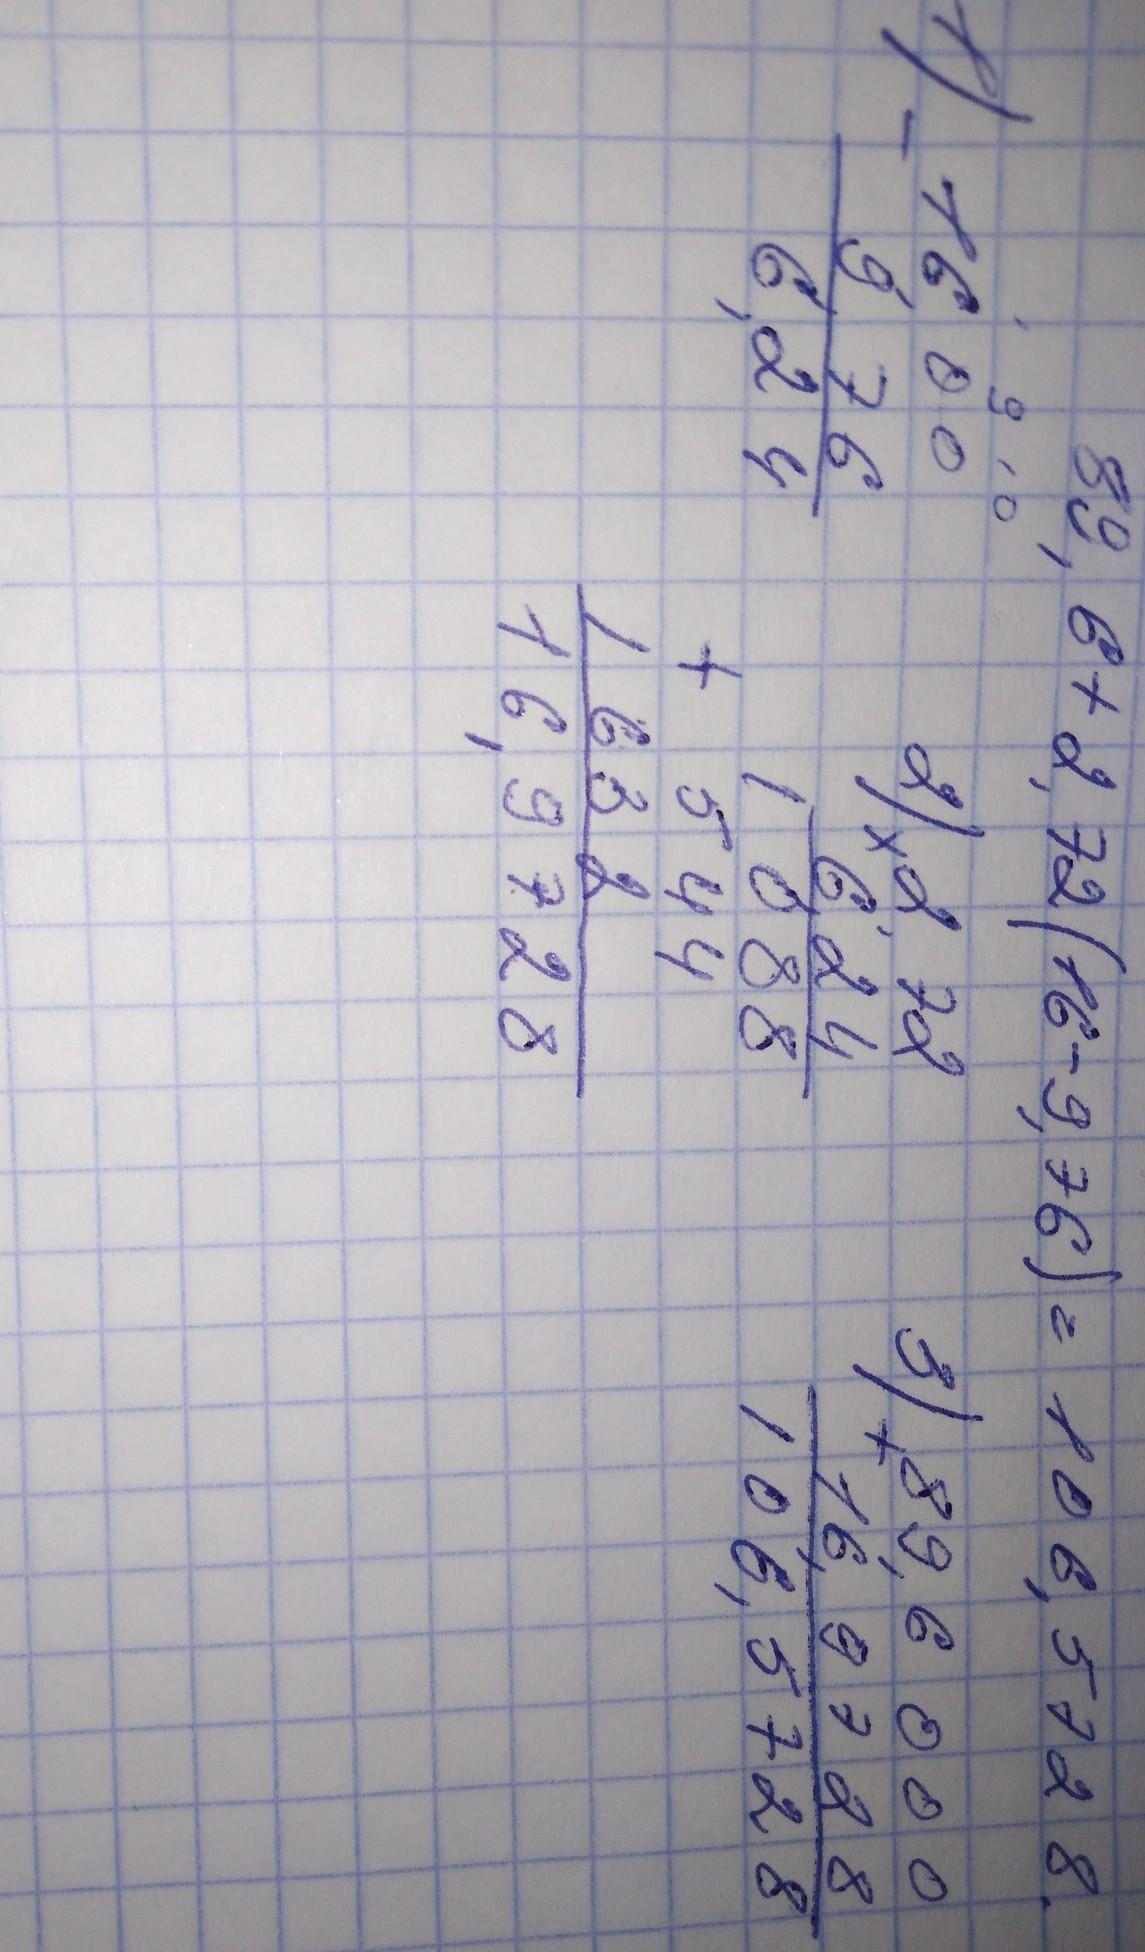 89,6+2,72(16-9,76)=106,5728.
1) - 16,00
9,76
6,24
2) × 2,72
6,24
1088
+ 544
1632
16,9728
3) + 89,6000
16,9728
106,5728